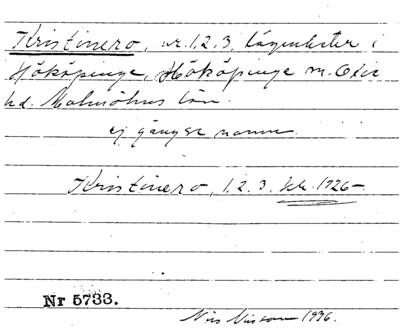 Kristinero, nr. 1. 2. 3. lägenheter i
Hököpinge, Hököpinge sn. Oxie
hd. Malmöhus län.
ej gängse namn.
Kristinero, 1. 2. 3. 1726
Nr 5733.
Nils Nilsson 1936.